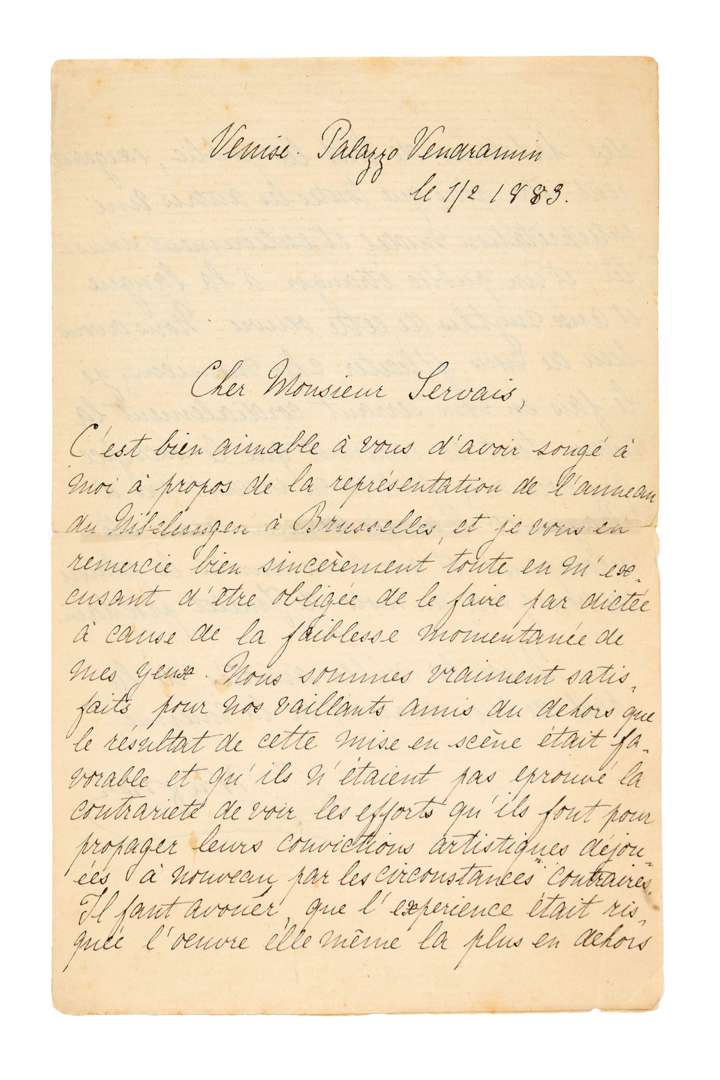 Venise. Palazzo Vendramin
le 1/2 1883.
Cher Monsieur Servais,
C'est bien aimable à vous d'avoir songé à
moi à propos de la représentation de l'anneau
du Nibelungen à Brusselles, et je vous en
remercie bien sincèrement toute en m'ex-
cusant d'être obligée de le faire par dictée
à cause de la faiblesse momentanée de
mes yeux. Nous sommes vraiment satis-
faits pour nos vaillants amis du dehors que
le résultat de cette mise en scène était fa-
vorable et qu'ils n'étaient pas eprouvé la
contrarieté de voir les efforts qu'ils font pour
propager leurs convictions artistiques déjou-
ées à nouveau par les circonstances contraires.
Il faut avouer, que l'experience était ris-
quée l'oeuvre elle même la plus en dehors